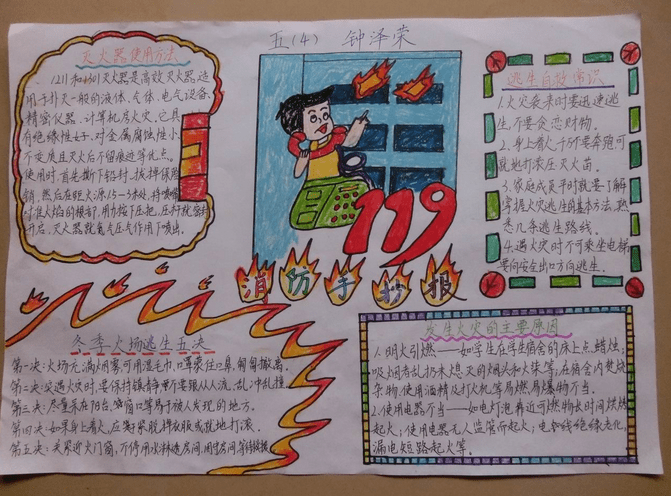 五(4) 钟泽荣
灭火器使用方法
1211和1301灭火器是高效灭火器,适
用于扑灭一般的液体、气体、电气设备、
精密仪器、计算机房火灾。它具
有绝缘性好,对金属腐蚀性小,
不变质且灭火后不留痕迹等优点。
使用时,首先撕下铅封,拔掉保险
销,然后在距火源1.5—3米处,将喷嘴
对准火焰的根部,用力按下压把,压杆就
开启,灭火器就氮气压气作用下喷出。
119
消防手抄报
逃生自救常识
1.火灾袭来时要迅速逃
生,不要贪恋财物。
2.身上着火,千万不要奔跑可
就地打滚压灭火苗。
3.家庭成员平时就要了解
掌握火灾逃生的基本方法,熟
悉几条逃生路线。
4.遇火灾时不可乘坐电梯
要向安全出口方向逃生。
冬季火场逃生五决
第一决:火场充满烟雾,可用湿毛巾、口罩煮住口鼻,匍匐撤离。
第二决:突遇火灾时,要保持镇静,千万不要跟从人流、乱冲乱撞。
第三决:尽量呆在阳台、窗口等易于被人发现的地方。
第四决:如果身上着火,应赶紧脱掉衣服或就地打滚。
第五决:关紧近火门窗,不停用水淋透房间,固守房间等待救援。
发生火灾的主要原因
1.明火引燃——如学生在学生宿舍的床上点蜡烛;
吸烟者乱扔未熄灭的烟头和火柴等,在宿舍内焚烧
杂物,使用酒精及打火机等易燃易爆物不当。
2.使用电器不当——如电灯泡靠近可燃物长时间烘烤
起火;使用电器无人监管而起火;电气线绝缘老化,
漏电短路起火等。